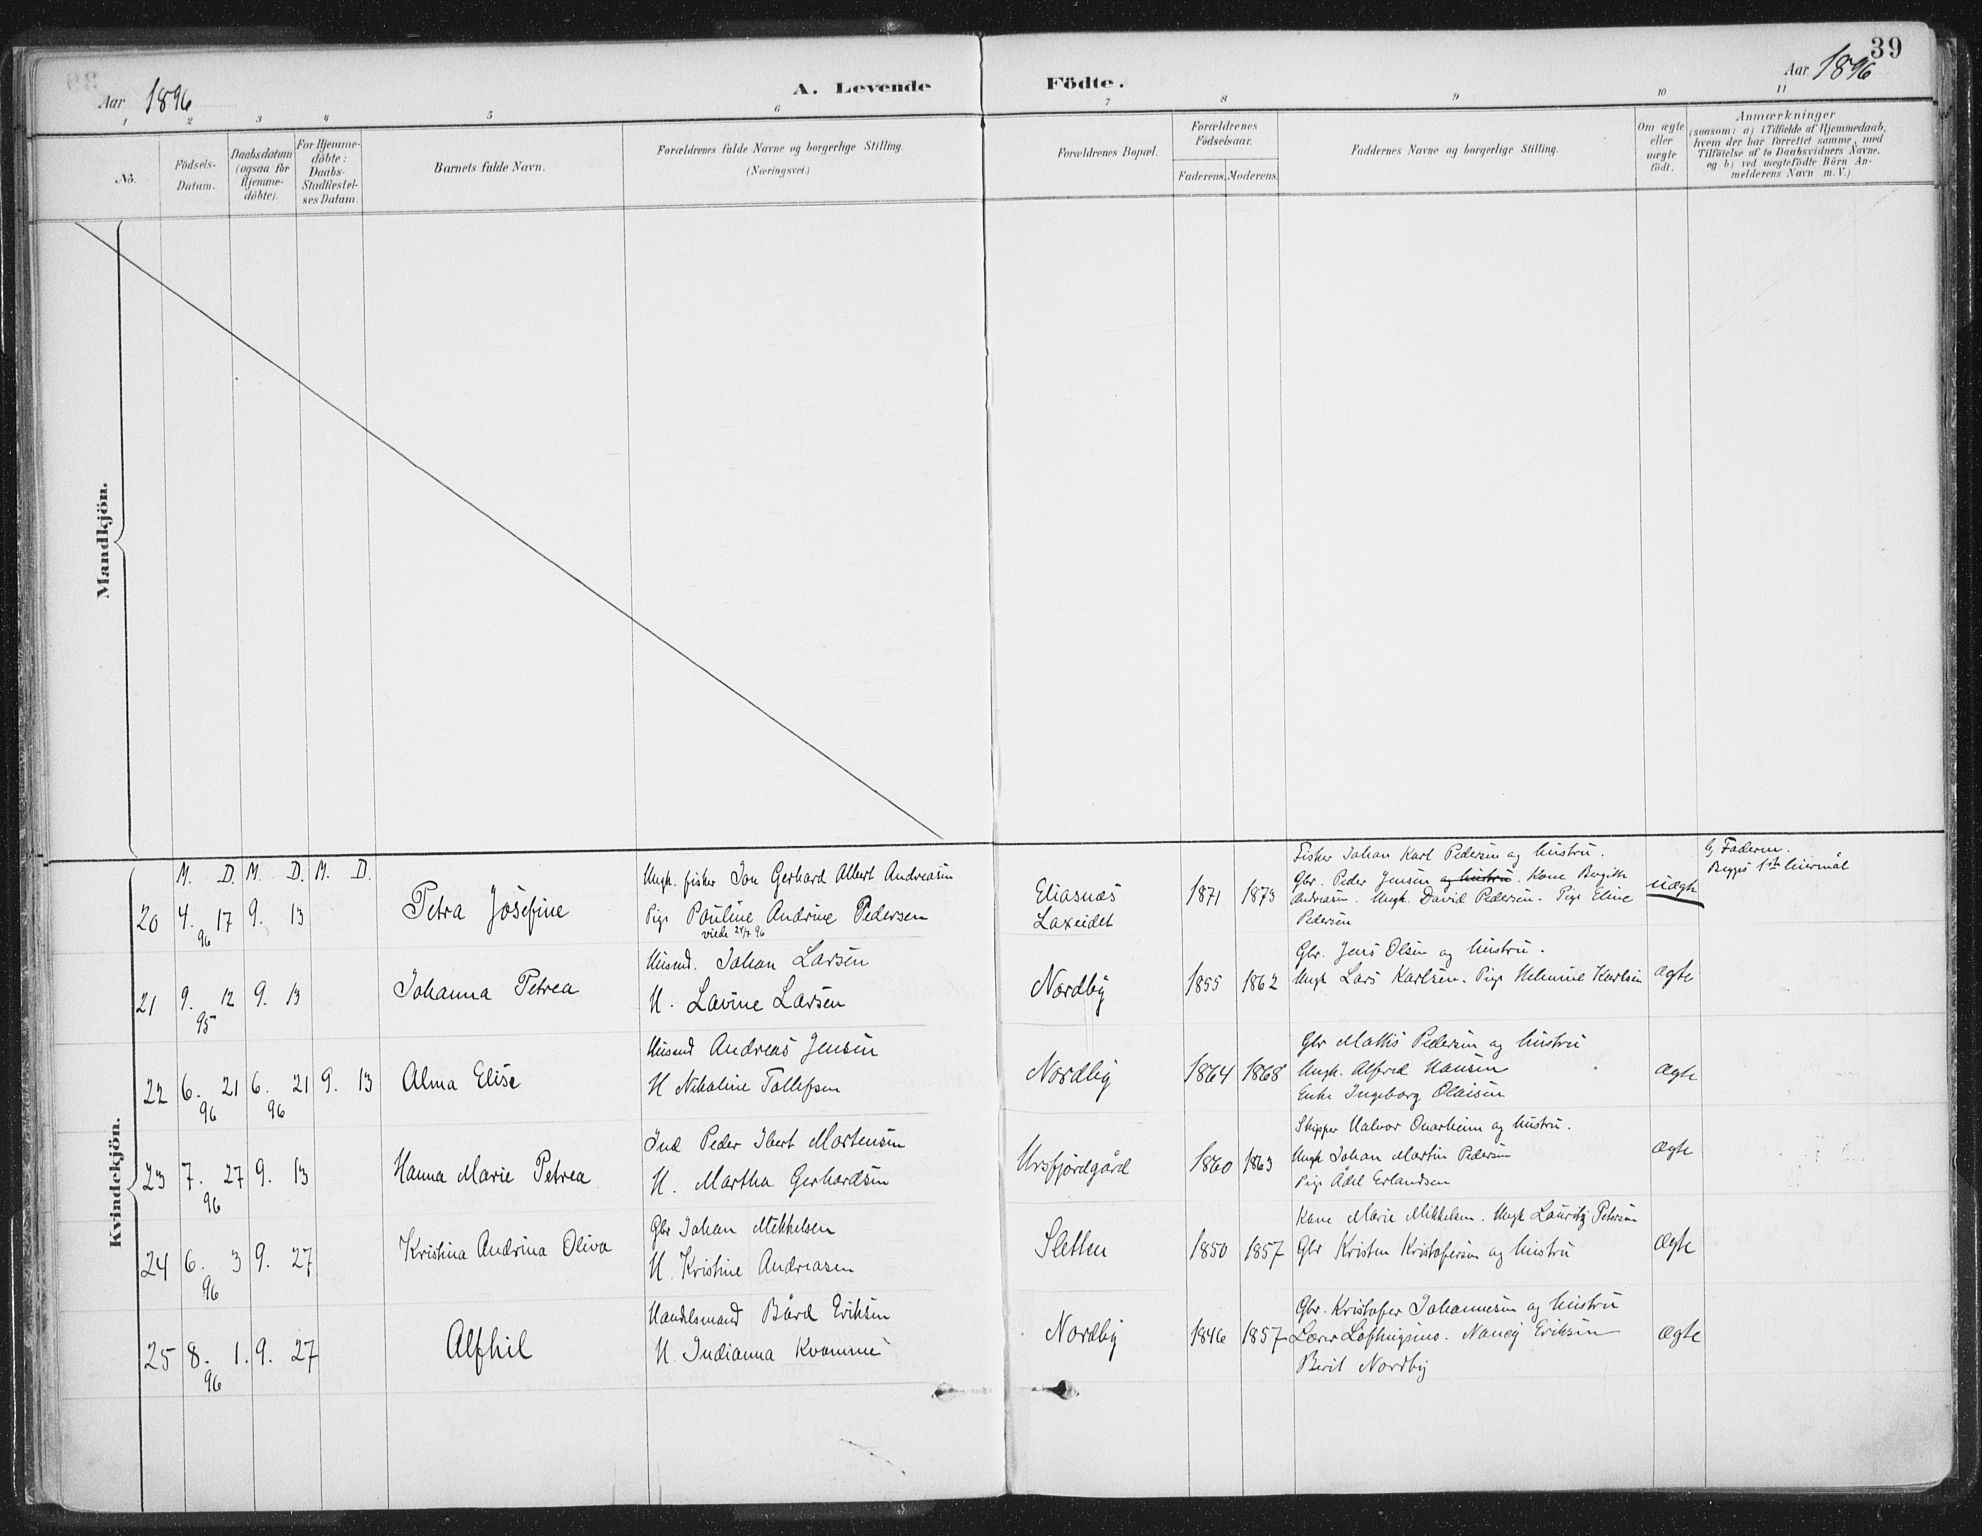 39
Aar 1896
A. Levende Födte.
Aar 1896
1 2 3 4 5 6 7 8 9 10 11
No.
Födsels-
Datum.
Daabsdatum
(ogsaa for
Hjemme-
döbte).
For Hjemme-
döbte:
Daabs-
Stadfæstel-
ses Datum.
Barnets fulde Navn.
Forældrenes fulde Navne og borgerlige Stilling.
(Næringsvei.)
Forældrenes Bopæl.
Forældrenes
Födselsaar.
Faderens. Moderens.
Faddernes Navne og borgerlige Stilling.
Om ægte
eller
uægte
födt.
Anmærkninger
(saasom: a) i Tilfælde af Hjemmedaab,
hvem der har forrettet samme, med
Tilföielse af to Daabsvidners Navne.
og b) ved uægtefödte Börn An-
melderens Navn m. V.)
Mandkjön.
Kvindekjön.
M. D. M. D. M. D.
20 4. 17 9. 13
96
Petra Josefine
Ungk. fisker Jon Gerhard Albert Andreasen
Pige Pauline Andrine Pedersen
viede 24/7 96
Eliasnæs
Laxeidet
1871 1873
Fisker Johan Karl Pedersen og hustru.
Gbr. Peder Jensen og hustru. Kone Bergith
Andreasen. Ungk. David Pedersen. Pige Eline
Pedersen
uægte
Faderen.
Begges 1ste leiermål
21 9. 12 9. 13
95
Johanna Petrea
Husmd. Johan Larsen
H. Lavine Larsen
Nordby
1855 1862
Gbr. Jens Olsen og hustru.
Ungk Lars Karlsen. Pige Helmine Karlsen
ægte
22 6. 21 6. 21 9. 13
96 96
Alma Elise
Husmd Andreas Jensen
H Nikoline Tollefsen
Nordby
1864 1868
Gbr Mathis Pedersen og hustru
Ungk. Alfred Hansen
Enke Ingeborg Olaisen
ægte
23 7. 27 9. 13
96
Hanna Marie Petrea
Ind Peder Ibert Mortensen
H. Martha Gerhardsen
Ursfjordgård
1860 1863
Skipper Halvor Qvarheim og hustru.
Ungk Johan Martin Pedersen
Pige Ådel Erlandsen
ægte
24 6. 3 9. 27
96
Kristina Andrina Oliva
Gbr Johan Mikkelsen
H. Kristine Andreasen
Sletten
1850 1857
Kone Marie Mikkelsen. Ungk Lauritz Petersen
Gbr Kristen Kristofersen og hustru
ægte
25 8. 1. 9. 27
96
Alfhil
Handelsmand Bård Eriksen
H. Indianna Kvamme
Nordby
1846 1857
Gbr. Kristofer Johannesen og hustru
Lærer Nancy Eriksen
Berit Nordby
ægte